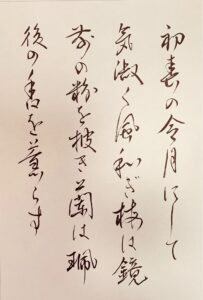 初春の令月にして
気淑く風和ぎ梅は鏡
前の粉を披き蘭は珮
後の香を薫らす